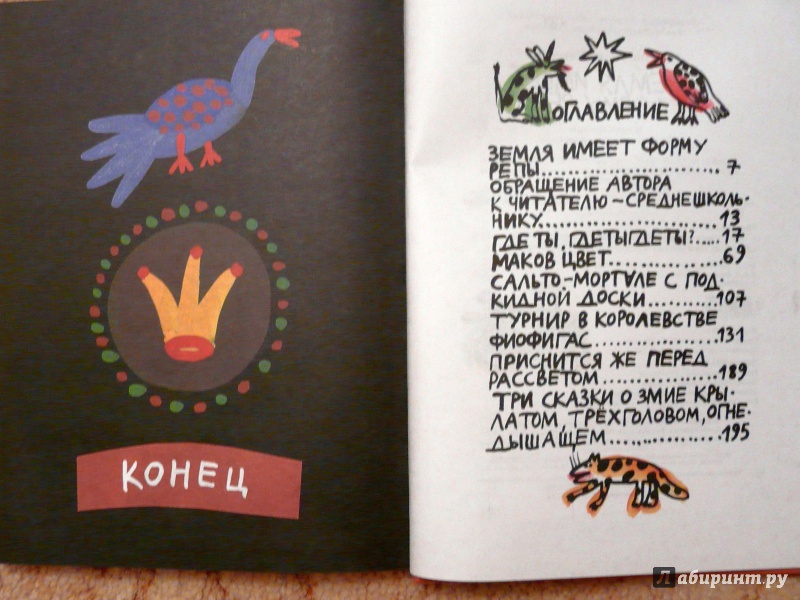 КОНЕЦ
ОГЛАВЛЕНИЕ
ЗЕМЛЯ ИМЕЕТ ФОРМУ
РЕПЫ.......................7
ОБРАЩЕНИЕ АВТОРА
К ЧИТАТЕЛЮ-СРЕДНЕШКОЛЬ-
НИКУ.......................13
ГДЕ ТЫ, ГДЕТЫГДЕТЫ?.....17
МАКОВ ЦВЕТ...............69
САЛЬТО-МОРТАЛЕ С ПОД-
КИДНОЙ ДОСКИ..........107
ТУРНИР В КОРОЛЕВСТВЕ
ФИОФИГАС...............131
ПРИСНИТСЯ ЖЕ ПЕРЕД
РАССВЕТОМ...............189
ТРИ СКАЗКИ О ЗМИЕ КРЫ-
ЛАТОМ, ТРЁХГОЛОВОМ, ОГНЕ-
ДЫШАЩЕМ...............195
Лабиринт.ру